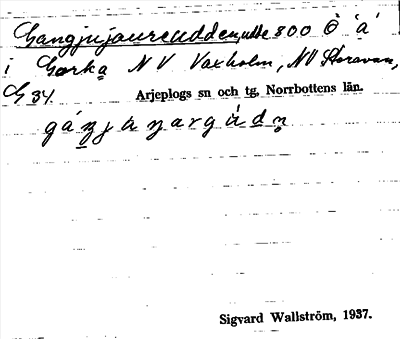 Gangjujaureudden, udde 300 Ö 'a'
i Gorka NV Vaxholm, NV Storavan,
G 34. Arjeplogs sn och tg, Norrbottens län.
Sigvard Wallström, 1937.